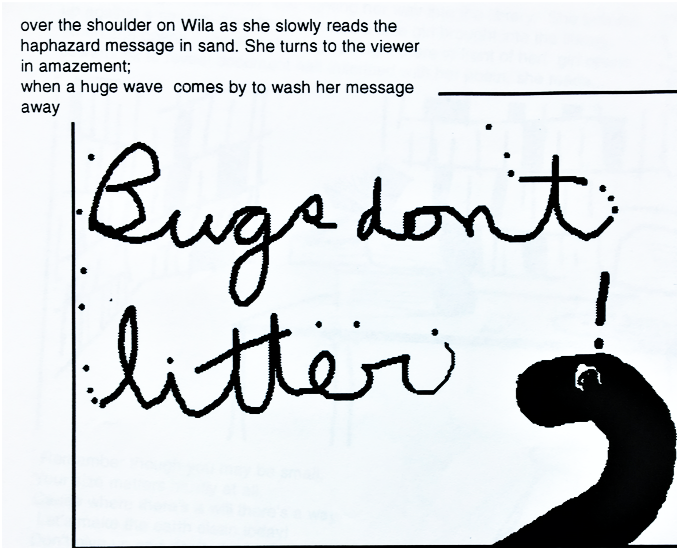 over the shoulder on Wila as she slowly reads the
haphazard message in sand. She turns to the viewer
in amazement;
when a huge wave comes by to wash her message
away
Bugs dont
litter
!